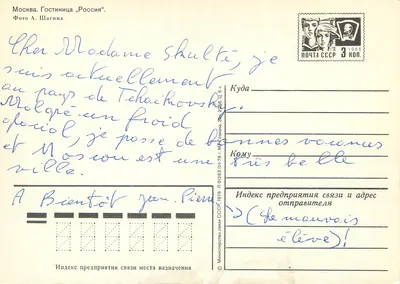 Москва. Гостиница „Россия".
Фото А. Шагина
ПОЧТА СССР 3 КОП.
1966
Cher Madame Skulté, je
suis actuellement
au pays de Tchaïkovsky.
Malgré un froid
glacial, je passe de bonnes vacances
et Moscou est une très belle
ville.
A Bientôt Jean-Pierre
(le mauvais
élève)!
Куда
Кому
Индекс предприятия связи и адрес
отправителя
Индекс предприятия связи места назначения
© Министерство связи СССР, 1978